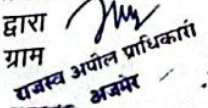 द्वारा
ग्राम
राजस्व अपील प्राधिकारी
अजमेर